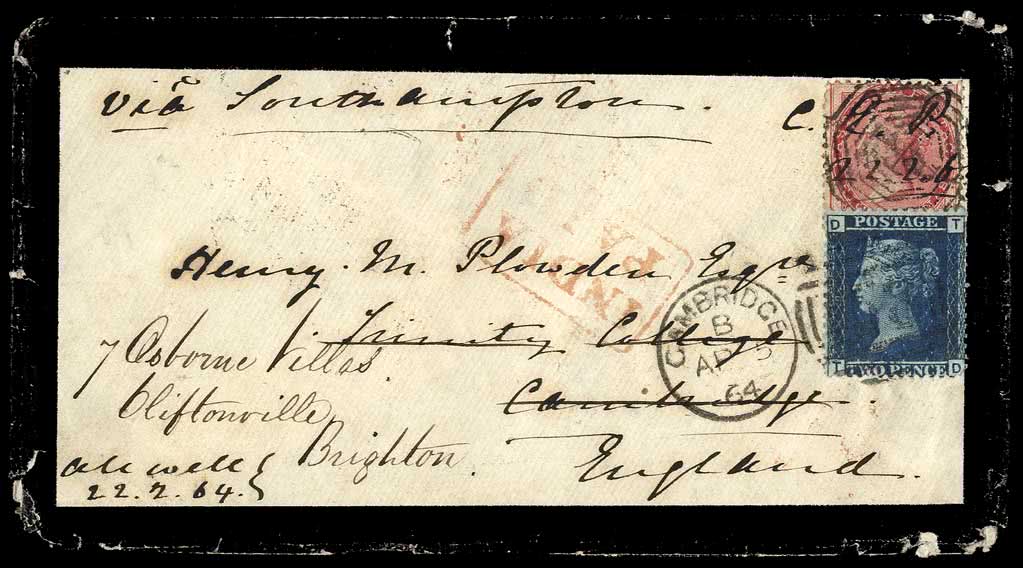 viâ Southampton.
C. P.
22.2.6
D POSTAGE T
T TWOPENCE D
Henry. M. Plowden Esqre
INDIA
PAI
Trinity College
CAMBRIDGE
B
AP
64
7 Osborne Villas
Cliftonville
Cambridge.
Brighton.
England.
All well
22.2.64.